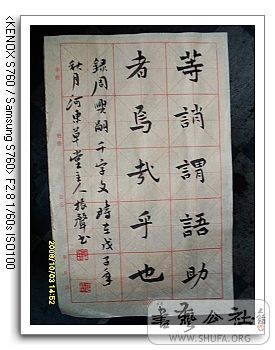 <KENOX S760 / Samsung S760> F2.8 1/60s ISO100
等誚謂語助
者焉哉乎也
錄周興嗣千字文時在戊子年
秋月河東草堂主人振聲書
2008/10/03 14:52
書藝公社
WWW.SHUFA.ORG